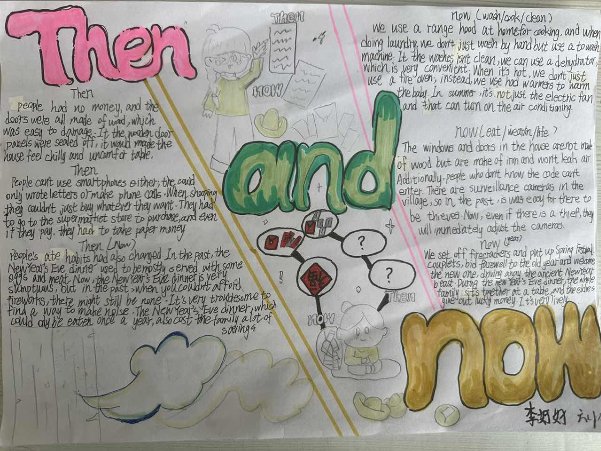 Then
Then
people had no money, and the
doors were all made of wood, which
was easy to damage. If the wooden door
panels were sealed off, it would make the
house feel chilly and uncomfortable.
Then
People can't use smartphones either, the could
only wrote letters or make phone calls. When shopping
they couldn't just buy whatever they want. They had
to go to the supermarket store to purchase, and even
if they pay, they had to take paper money
Then (Now)
People's habits had also changed. In the past, the
New Year's Eve dinner used to be mostly served with some
and meat. Now, the New Year's Eve dinner is very
sumptuous. but in the past, when you couldn't afford
fireworks, there might still be none. It's very troublesome to
find a way to make noise. The New Year's Eve dinner, which
could only be eaten once a year, also cost the family a lot of
savings
and
Then
Now
福
?
?
Then
Now
now (wash/cook/clean)
We use a range hood at home for cooking, and when
doing laundry, we don't just wash by hand but use a
machine. If the isn't clean, we can use a dehydrator,
which is very convenient. When it's hot, we don't just
use a fire oven, instead, we use had warmers to warm
the body. In summer it's not just the electric fan
and that can turn on the air conditioning.
now (eat/ /life)
The windows and doors in the house aren't made
of wood but are made of iron and won't leak air
Additionally, people who don't know the code can't
enter. There are surveillance cameras in the
village, so in the past, it was easy for there to
be thieves. Now, even if there is a thief, they
will immediately adjust the cameras.
now (year)
We set off firecrackers and put up Spring Festival
couplets, bid farewell to the old year and welcome
the new one, driving away the ancient New year
beast. During the New Year's Eve dinner, the whole
family sits together at a table, and the elders
give out lucky money. It's very lively.
now
李好好